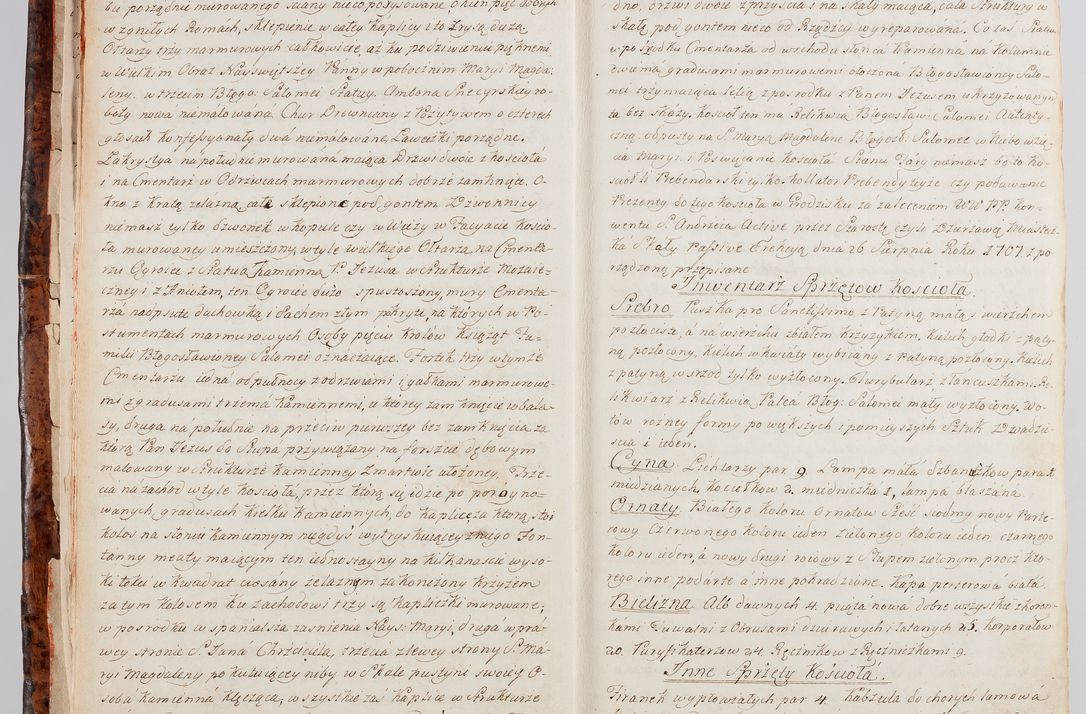 bu porządnie murowanego sciany nieco porysowane okien pięć dobrych
w zgniłych Romach, sklepienie w całey Kaplicy iżo zrysą dużą
Ołtarzy trzy marmurowych całkowicie, aż ku podziwieniu pięknemi
w Wielkim Obraz Nayswiętszey Panny w pobocznim Maryi Magda-
leny. w trzecim Błogo: Salomei Statuy. Ambona Snycyrskiey ro-
boty nowa niemalowána, Chur Drewniany z Pozytywem o czterech
głosach konfessyonały dwá niemalowáne, Ławeczki porządne.
Zakrystya na południe murowana maiąca Drzwi dwoie z kościoła
i na Cmentarz w Odrzwiach marmurowych dobrze zamknięte. O-
kno z Kratą zelazną, cała sklepiona pod gontem Dzwonnicy
niemasz tylko dzwonek w kopule czy w Wieży w Facyacie kościo-
ła murowaney umieszczony, w tyle wielkiego Ołtarza na Cmenta-
rzu Ogroiec z Statua Kamienną P. Jezusa w Strukturze Mozaie-
czney i z Aniołem, ten Ogroiec dużo spustoszony, mury Cmenta-
rza nadpsute dachowką i dachem złym pokryte, na których w Po-
stumentach marmurowych Osoby pięciu Krolow Xiążąt Fa-
milii Błogosławioney Salomei oznaczaiące. Fortek trzy w tymże
Cmentarzu iedná od pułnocy z odrzwiami i gałkami marmurowe-
mi z gradusami trzema Kamiennemi, u ktorey zamknięcie w bala-
sy, druga na południe na przeciw pierwszey bez zamknięcia za
którą Pan Jezus do Słupa przywiązany na forszcie dębowym
malowany w Strukturze Kamienney Zmartwie ułożoney. Trze-
cia na zachod w tyle kościoła, przez ktorą się idzie po porojno-
wanych, gradusach kielku Kamiennych, do Kaplic, za ktorą stoi
kolos na słoniu kamiennym niegdyś wytryskuiącey z niego Fon-
tanny meaty maiącym ten iednostayny na kilkanaście wyso-
ki łokci w Kwadrat ciosany zelaznym zakonczony Krzyżem
za tym Kolosem Ku zachodowi trzy są Kapliczki murowane,
w posrodku w spanialsza zasnienia Nays: Maryi, druga w pra-
wey stronie S. Jana Chrzciciela, trzecia z lewey strony S. Ma-
ryi Magdaleny, pokutuiącey niby w Skale pustyni swoiey O-
sobá Kamienná klęcząca, wszystkie zaś Kaplice w Strukturze
dno, drzwi dwoie z przyścia i na skały maiąca, cała Struktury w
skałę pod gontem nieco od Rządzcy wyreparowána. Co zaś Statua
w pośrodku Cmentarza od wschodu słonca Kamienna na Kolumnie
dwiema gradusami marmurowemi otoczona Błogosławioney Salo-
mei trzymaiąca Lelią z posrodku z Panem Jezusem ukrzyżowanym
ta bez skázy. Kościoł ten má Relikwią Błogosław: Salomei Autenty-
czną: odpusty na S. Maryą Magdalene Błogosł: Salomee w Niebo wzię-
cia Maryi. i Poświęcanie Kościołá Stanu Fary niemasz bo to Ko-
scioł li Prebendarski tylko. Kollator Prebendy teyże czy podawanie
Prezenty do tego kościoła w Grodzisku za zaleceniem WW PP. Kon-
wentu S. Andrzeia Active przez Starostę czyli Dzierżawę Miastecz-
ka Skały Passive Erekcyą dnia 26 Sierpnia Roku 1707. z po-
rządzoną przepisane
Inwentarz Sprzętow kościoła.
Srebro. Puszka pro Sanctissimo z Patyną małą i wierzchem
pozłocista, á na wierzchu zbiałem Krzyżykiem. Kielich gładki z paty-
ną pozłocony, Kielich w kwiaty wybiiany z Patyną pozłocony. Kielich
z patyną w srzod tylko wyzłocony. Turybularz z łancuszkami. Re-
likwiarz z Relikwią Palca Błog: Salomei mały wyzłocony. Wo-
tow rozney formy powiększych i pomnieyszych Sztuk Dwadzie-
scia i ieden.
Cyna. Lichtarzy par 9 Lampa mała Szbanuszkow para 1
miedzianych Kociełkow 2. miedniczka 1, lampa blaszana.
Ornaty. Białego Koloru Ornatow Sześć siodmy nowy Parte-
rowy Czerwonego Koloru ieden zielonego Koloru ieden, czarnego
Koloru ieden, á nowy drugi rożowy z Słupem zielonym procz kto-
rego inne podárte á inne pokradzione. Kapa perterowa biała.
Bielizna. Alb dawnych 4. piątá nowá dobre wszystkie z koron-
kami Tuwalni z Obrusami dziurawych i łatanych 25. Korporałow
20. Puryfikaterzow 24. Ręcznikow z Ręczniczkami 9.
Inne Sprzęty Kościoła.
Firanek wypłowiałych par 4. Kabzula do chorych lamowá